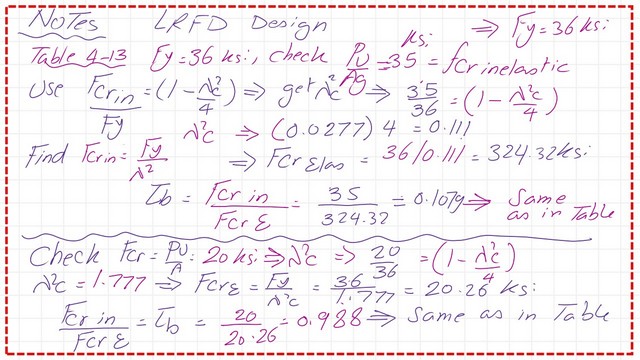 NOTES LRFD Design ⇒ Fy=36 ksi
Table 4-13 Fy=36 ksi, check Pu/Ag = 35 ksi = fcr inelastic
Use Fcr in/Fy = (1 - λ²c/4) ⇒ get λ²c ⇒ 35/36 = (1 - λ²c/4)
λ²c ⇒ (0.0277) 4 = 0.111
Find Fcr in = Fy/λ² ⇒ Fcr Elas = 36/0.111 = 324.32 ksi
τb = Fcr in/Fcr E = 35/324.32 = 0.1079 ⇒ Same as in Table
Check Fcr = Pu/A = 20 ksi ⇒ λ²c ⇒ 20/36 = (1 - λ²c/4)
λ²c = 1.777 ⇒ Fcr E = Fy/λ²c = 36/1.777 = 20.26 ksi
Fcr in/Fcr E = τb = 20/20.26 = 0.988 ⇒ Same as in Table